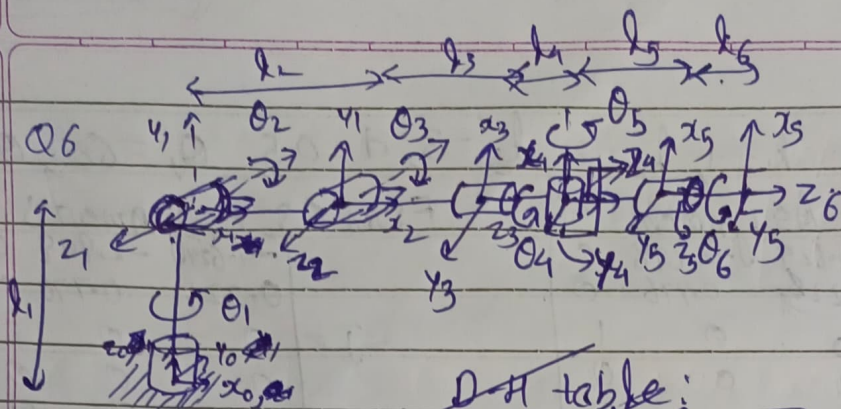 l2 l3 l4 l5 l6
Q6 y1 θ2 y1 θ3 x3 θ5 x5 x5
x4 z4
z6
z1 x2 z2 z3 θ4 y4 y5 z5 θ6 y5
y3
l1 θ1
y0
x0
D-H table: